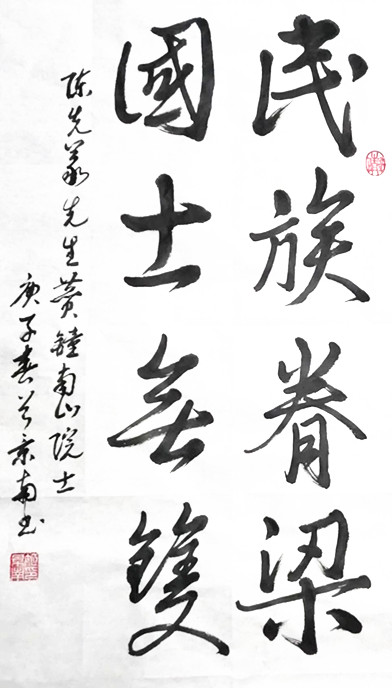 民族脊梁
國士無雙
陈先義先生赞鐘南山院士
庚子春京南书